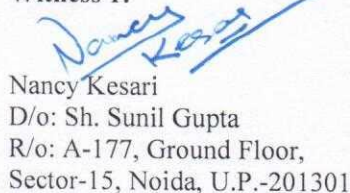 Nancy
Kesari
Nancy Kesari
D/o: Sh. Sunil Gupta
R/o: A-177, Ground Floor,
Sector-15, Noida, U.P.-201301